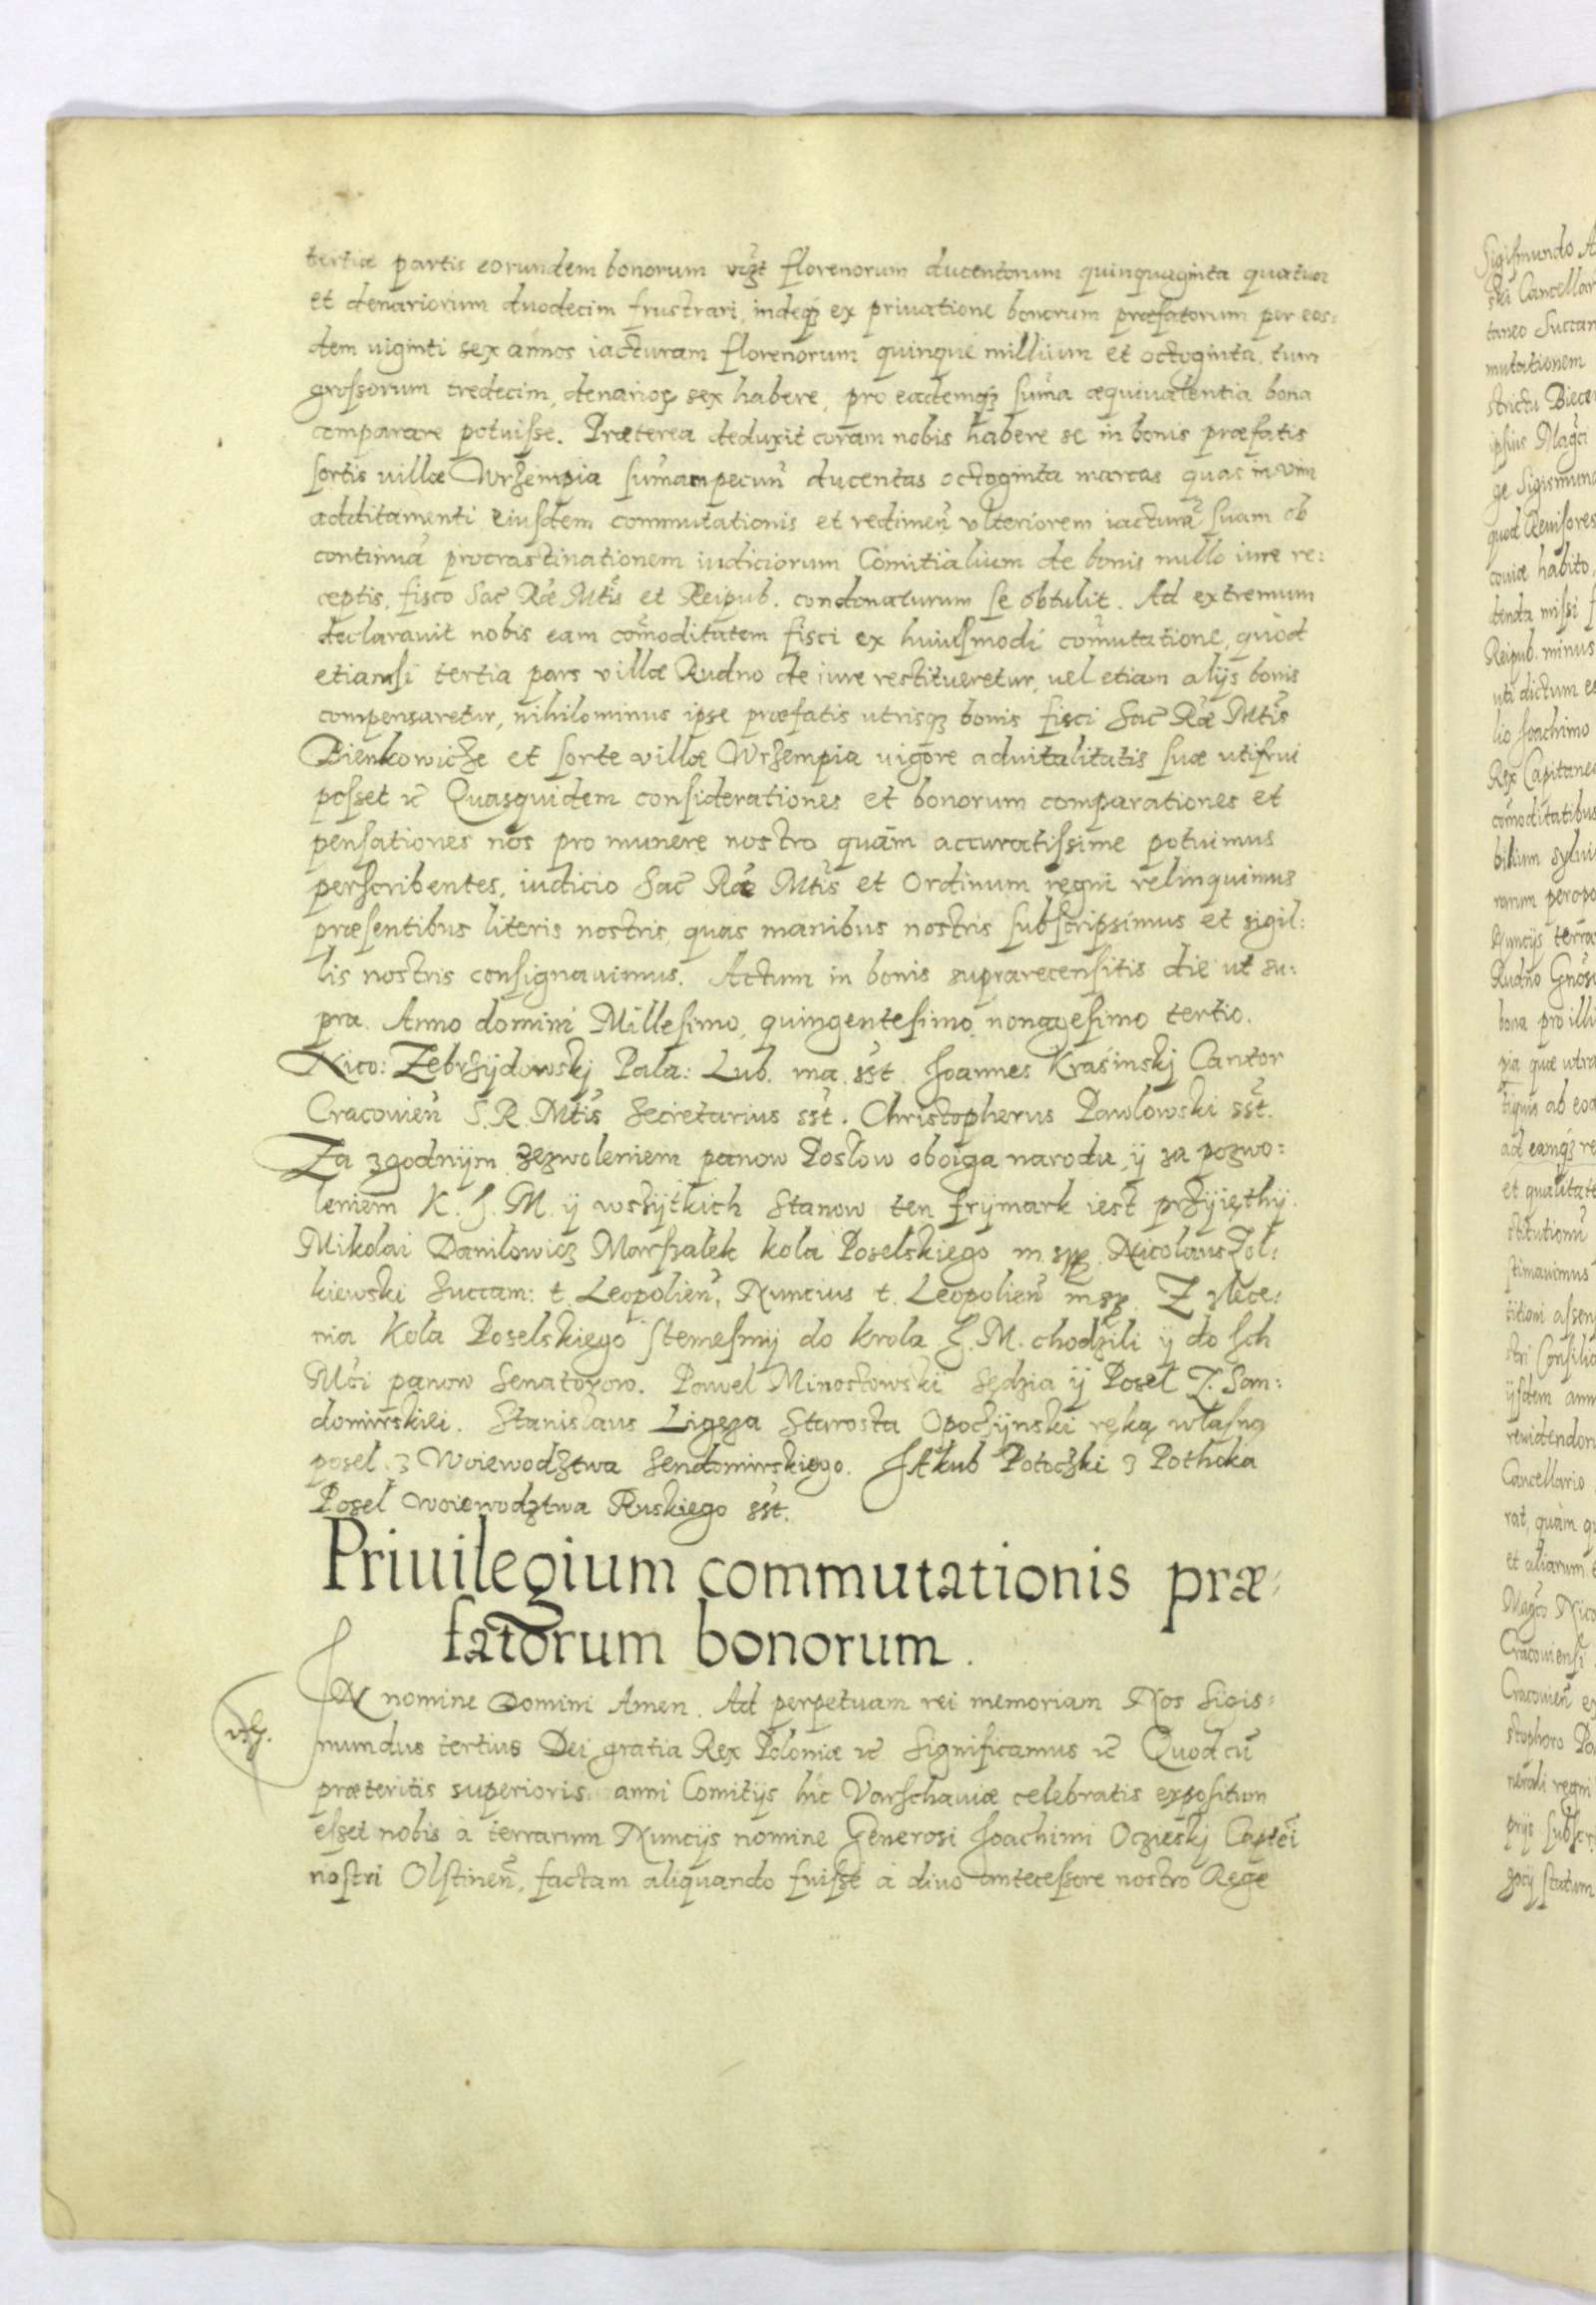 tertiæ partis eorundem bonorum vizt florenorum ducentorum quinquaginta quatuor
et denariorum duodecim frustrari, indeqꝫ ex priuatione bonorum præfatorum per eos:
dem uiginti sex annos iacturam florenorum quinque millium et octoginta, tum
grossorum tredecim, denarioꝝ sex habere, pro eademqꝫ suma æquiualentia bona
comparare potuisse. Præterea deduxit coram nobis habere se in bonis præfatis
sortis uillæ Wrzempia sumam pecuñ ducentas octoginta marcas quas in vim
additamenti eiusdem commutationis et redimeñ vlteriorem iacturã suam ob
continuã procrastinationem iudiciorum Comitialium de bonis nullo iure re:
ceptis, fisco Sac̃ Ræ Mtis et Reipub. condonaturum se obtulit. Ad extremum
declarauit nobis eam com̃oditatem fisci ex huiusmodi com̃utatione, quod
etiamsi tertia pars villæ Rudno de iure restitueretur, uel etiam alijs bonis
compensaretur, nihilominus ipse præfatis utrisqꝫ bonis fisci Sac̃ Ræ Mtis
Bienkowicze et sorte villæ Wrzempia uigore aduitalitatis suæ utifrui
posset ec̃ Quasquidem considerationes et bonorum comparationes et
pensationes nos pro munere nostro quàm accuratissime potuimus
perscribentes, iudicio Sac̃ Ræ Mtis et Ordinum regni relinquimus
præsentibus literis nostris, quas manibus nostris subscripsimus et sigil:
lis nostris consignauimus. Actum in bonis suprarecensitis die ut su:
pra. Anno domini Millesimo, quingentesimo, nonagesimo tertio.
Nico: Zebrzijdowskj Pala: Lub. ma. sst. Joannes Krasinskj Cantor
Cracouieñ S. R. Mtis Secretarius sst. Christopherus Pawlowski sst.
Za zgodnijm zezwoleniem panow Posłow oboiga narodu, ij za pozwo:
leniem K. J. M. ij wszijtkich Stanow ten frijmark iest przijięthij.
Mikolai Danilowicz Marszałek koła Poselskiego m. spp. Nicolaus Zol:
kiewski Succam: t. Leopolieñ, Nuncius t. Leopolieñ m spp. Z zlece:
nia Koła Poselskiego stemesmij do krola J. M. chodzili ij do Jch
Mści panow Senatorow. Pawel Minostowski Sędzia ij Poseł Z. San:
domirskiei. Stanislaus Ligęza Starosta Opoczijnski ręką własną
poseł z Woiewodztwa Sendomirskiego. Jakub Potoczki z Pothoka
Poseł woiewodztwa Ruskiego sst.
Priuilegium commutationis præ:
fatorum bonorum.
IN nomine Domini Amen. Ad perpetuam rei memoriam Nos Sigis:
mundus tertius Dei gratia Rex Poloniæ ec̃ Significamus ec̃ Quod cũ
præteritis superioris anni Comitijs hic Varschauiæ celebratis expositum
esset nobis à terrarum Nuncijs nomine Generosi Joachimi Oczieskj Captei
nostri Olstineñ, factam aliquando fuisse à diuo antecessore nostro Rege